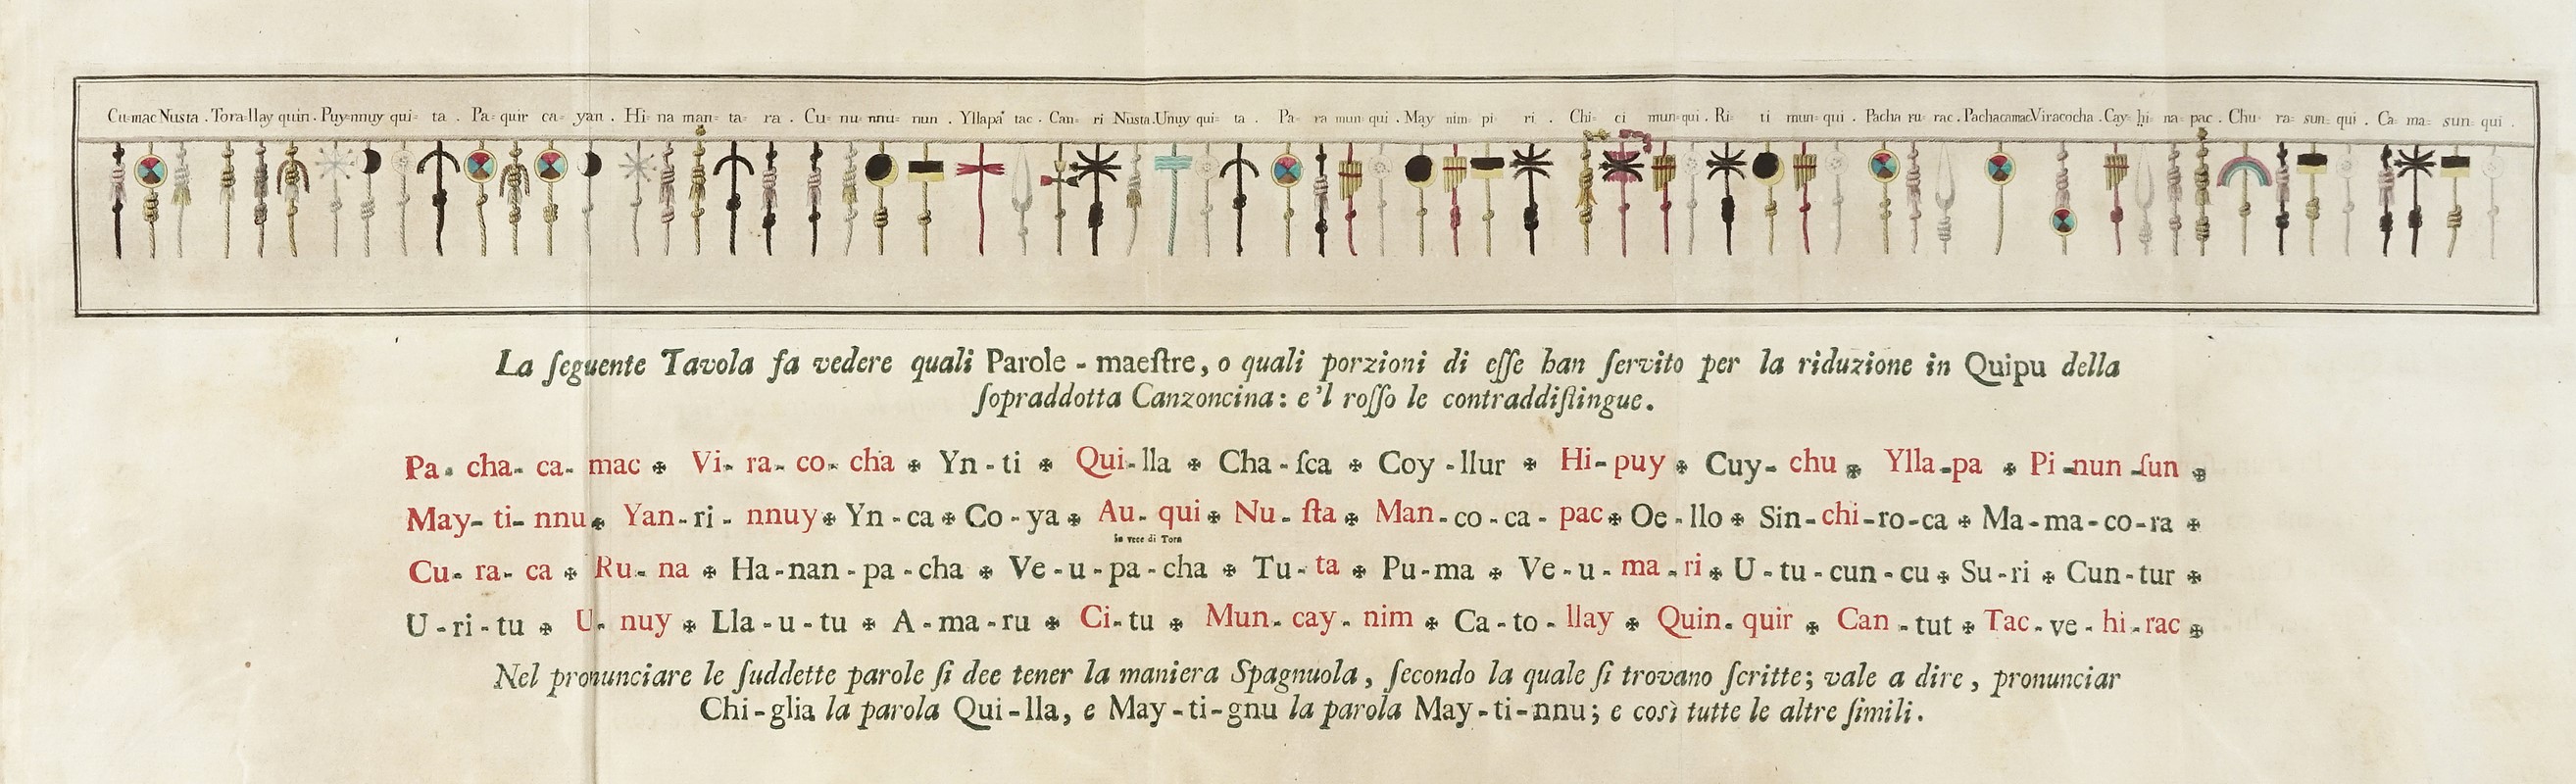 Cu=mac Nusta . Tora=llay quin . Puy=nnuy qui= ta . Pa= quir ca= yan . Hi= na man= ta= ra . Cu= nu= nnu= nun . Yllapa' tac . Can= ri Nusta . Unuy qui= ta . Pa= ra mun= qui . May nim= pi= ri . Chi= ci mun= qui . Ri= ti mun= qui . Pacha ru= rac . Pachacamac Viracocha . Cay= hi= na= pac . Chu= ra= sun= qui . Ca= ma= sun= qui .
La ſeguente Tavola fa vedere quali Parole - maeſtre, o quali porzioni di eſſe han ſervito per la riduzione in Quipu della
ſopraddotta Canzoncina: e'l roſſo le contraddiſtingue.
Pa - cha - ca - mac ✠ Vi - ra - co - cha ✠ Yn - ti ✠ Qui - lla ✠ Cha - ſca ✠ Coy - llur ✠ Hi - puy ✠ Cuy - chu ✠ Ylla - pa ✠ Pi - nun - ſun ✠
May - ti - nnu ✠ Yan - ri - nnuy ✠ Yn - ca ✠ Co - ya ✠ Au - qui ✠ Nu - ſta ✠ Man - co - ca - pac ✠ Oe - llo ✠ Sin - chi - ro - ca ✠ Ma - ma - co - ra ✠
in vece di Tora
Cu - ra - ca ✠ Ru - na ✠ Ha - nan - pa - cha ✠ Ve - u - pa - cha ✠ Tu - ta ✠ Pu - ma ✠ Ve - u - ma - ri ✠ U - tu - cun - cu ✠ Su - ri ✠ Cun - tur ✠
U - ri - tu ✠ U - nuy ✠ Lla - u - tu ✠ A - ma - ru ✠ Ci - tu ✠ Mun - cay - nim ✠ Ca - to - llay ✠ Quin - quir ✠ Can - tut ✠ Tac - ve - hi - rac ✠
Nel pronunciare le ſuddette parole ſi dee tener la maniera Spagnuola, ſecondo la quale ſi trovano ſcritte; vale a dire, pronunciar
Chi - glia la parola Qui - lla, e May - ti - gnu la parola May - ti - nnu; e così tutte le altre ſimili.